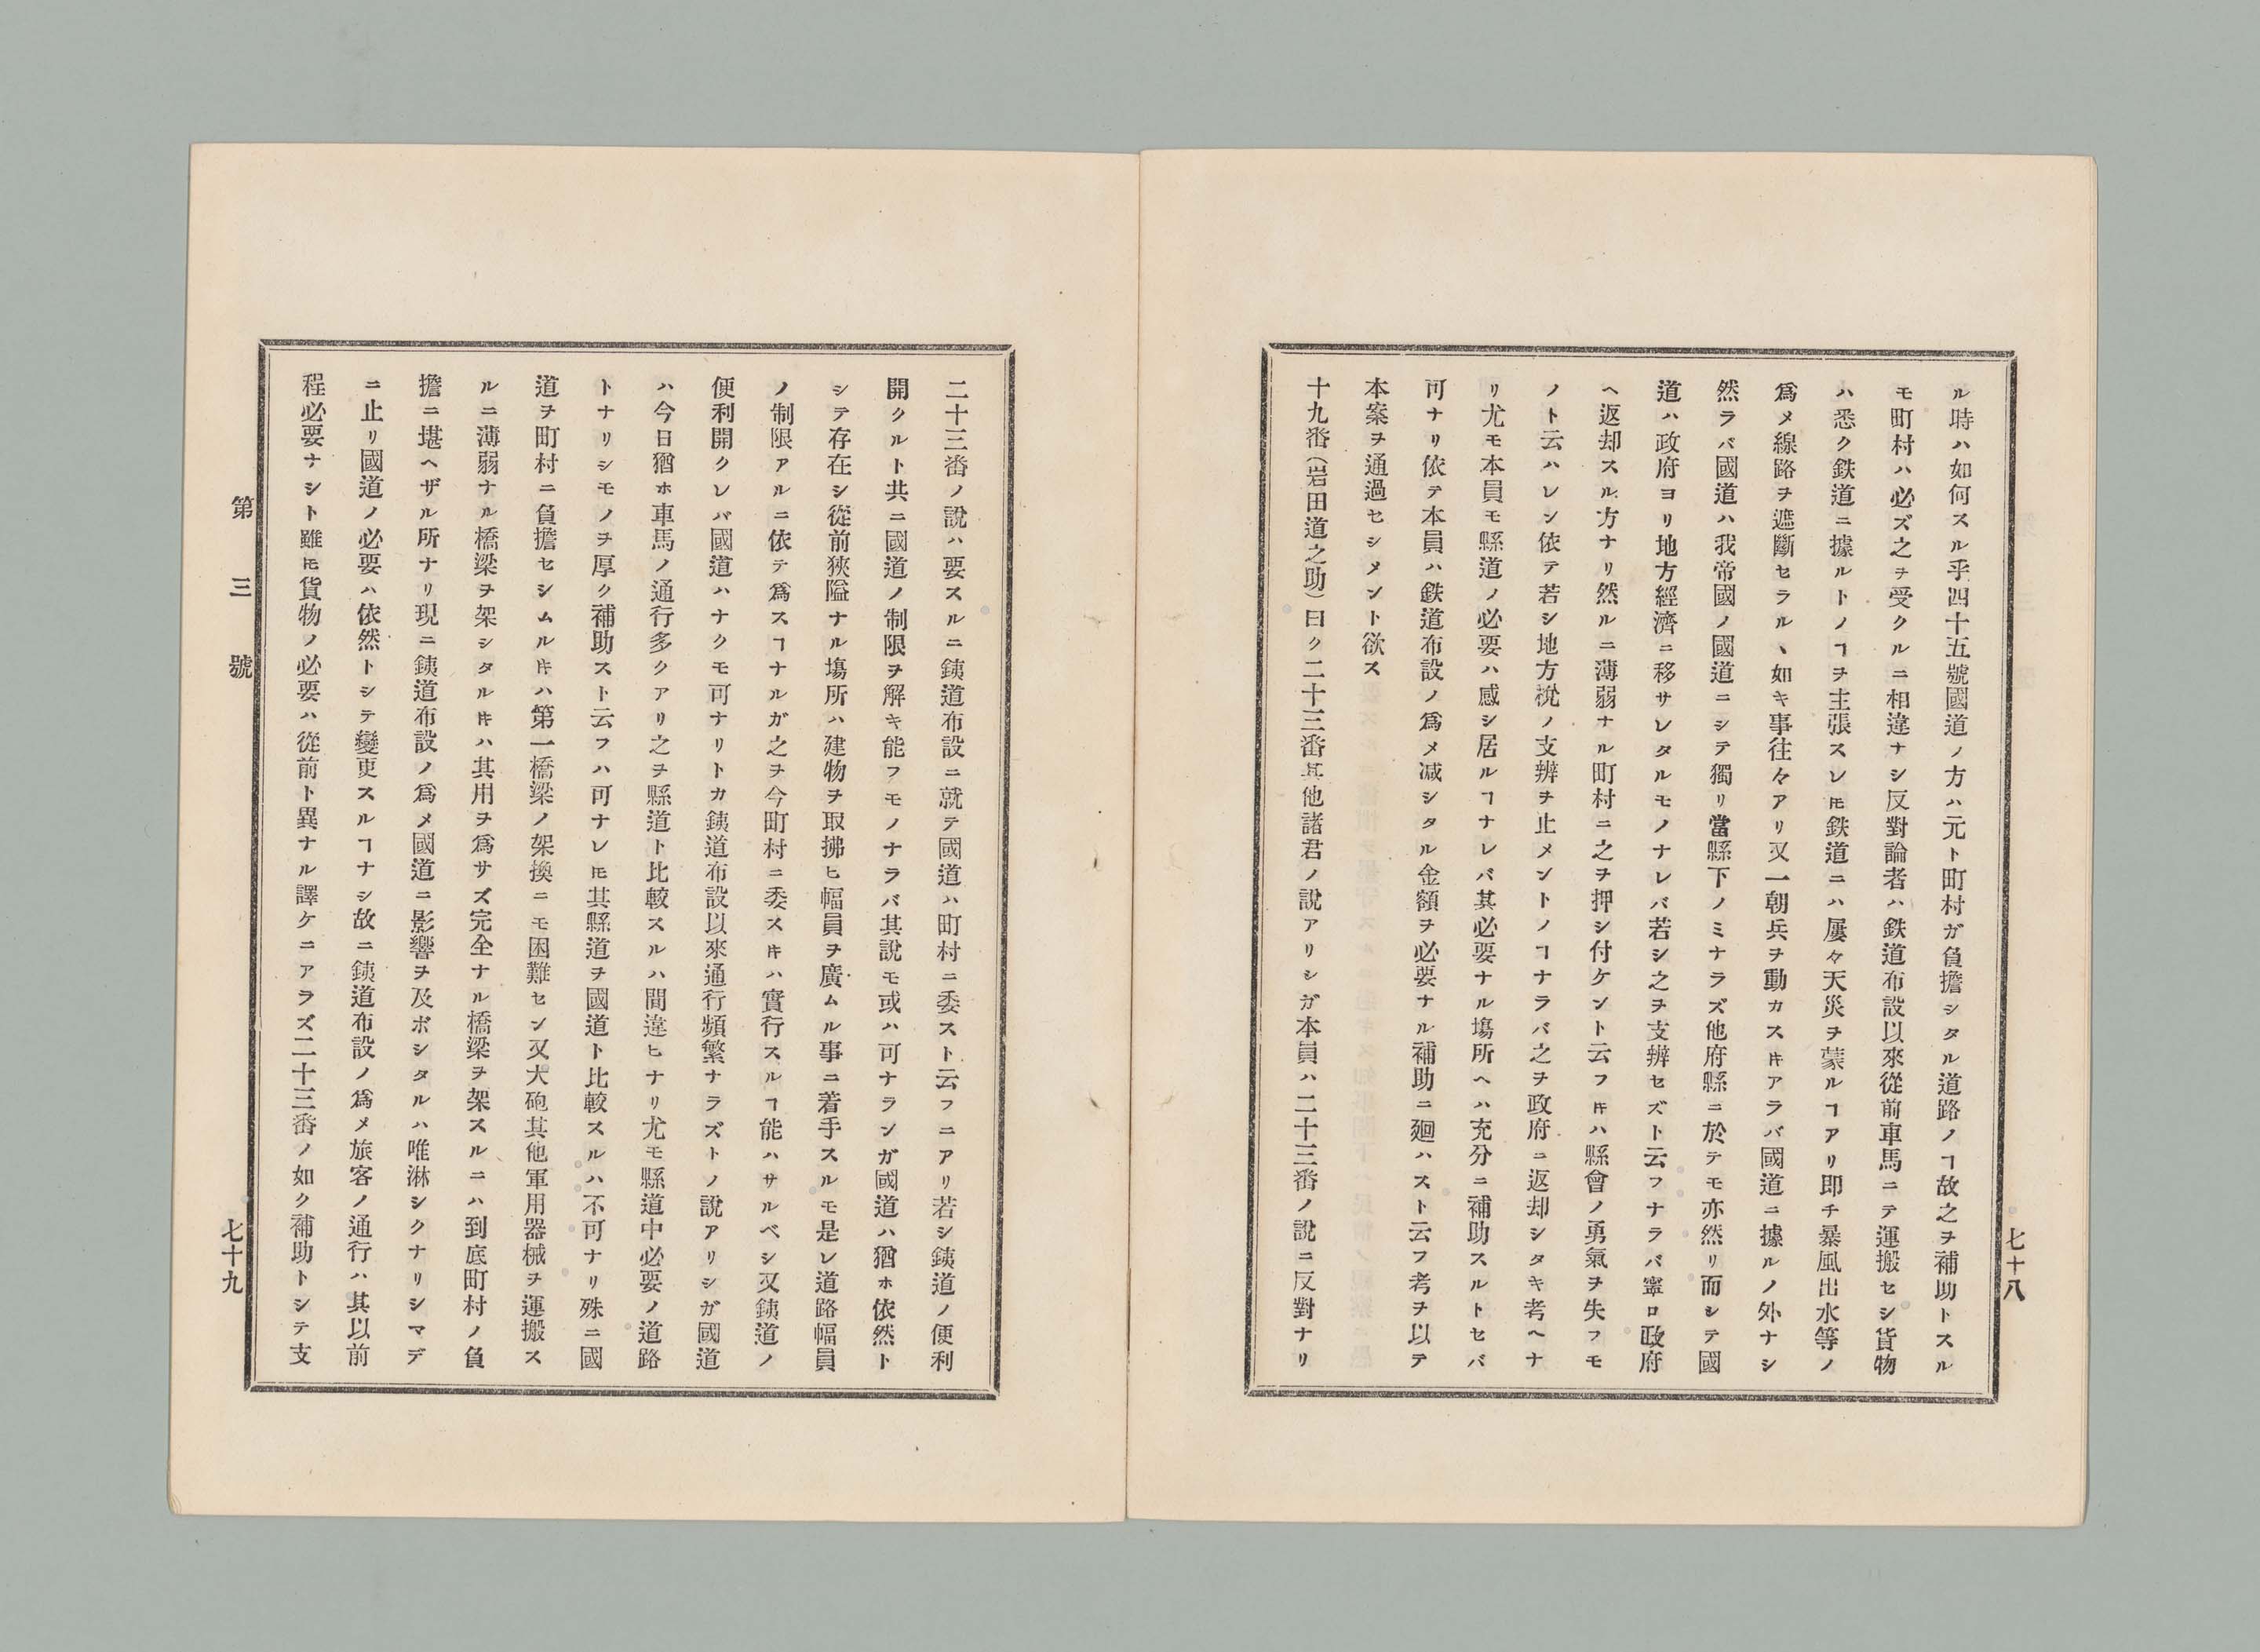 七十八
ル時ハ如何スル乎四十五號國道ノ方ハ元ト町村ガ負擔シタル道路ノヿ故之ヲ補助トスル
モ町村ハ必ズ之ヲ受クルニ相違ナシ反對論者ハ鉄道布設以來從前車馬ニテ運搬セシ貨物
ハ悉ク鉄道ニ據ルトノヿヲ主張スレ𪜈鉄道ニハ屢々天災ヲ蒙ルヿアリ即チ暴風出水等ノ
爲メ線路ヲ遮斷セラルヽ如キ事往々アリ又一朝兵ヲ動カスキアラバ國道ニ據ルノ外ナシ
然ラバ國道ハ我帝國ノ國道ニシテ獨リ當縣下ノミナラズ他府縣ニ於テモ亦然リ而シテ國
道ハ政府ヨリ地方經濟ニ移サレタルモノナレバ若シ之ヲ支辨セズト云フナラバ寧ロ政府
ヘ返却スル方ナリ然ルニ薄弱ナル町村ニ之ヲ押シ付ケント云フ𪜀ハ縣會ノ勇氣ヲ失フモ
ノト云ハレン依テ若シ地方稅ノ支辨ヲ止メントノヿナラバ之ヲ政府ニ返却シタキ考ヘナ
リ尤モ本員モ縣道ノ必要ハ感シ居ルヿナレバ其必要ナル塲所ヘハ充分ニ補助スルトセバ
可ナリ依テ本員ハ鉄道布設ノ爲メ减シタル金額ヲ必要ナル補助ニ廻ハスト云フ考ヲ以テ
本案ヲ通過セシメント欲ス
十九番(岩田道之助)曰ク二十三番其他諸君ノ說アリシガ本員ハ二十三番ノ說ニ反對ナリ
二十三番ノ說ハ要スルニ銕道布設ニ就テ國道ハ町村ニ委スト云フニアリ若シ銕道ノ便利
開クルト共ニ國道ノ制限ヲ解キ能フモノナラバ其說モ或ハ可ナランガ國道ハ猶ホ依然ト
シテ存在シ從前狹隘ナル塲所ハ建物ヲ取拂ヒ幅員ヲ廣ムル事ニ着手スルモ是レ道路幅員
ノ制限アルニ依テ爲スヿナルガ之ヲ今町村ニ委ス𪜀ハ實行スルヿ能ハサルベシ又銕道ノ
便利開クレバ國道ハナクモ可ナリトカ銕道布設以來通行頻繁ナラズトノ說アリシガ國道
ハ今日猶ホ車馬ノ通行多クアリ之ヲ縣道ト比較スルハ間違ヒナリ尤モ縣道中必要ノ道路
トナリシモノヲ厚ク補助スト云フハ可ナレ𪜈其縣道ヲ國道ト比較スルハ不可ナリ殊ニ國
道ヲ町村ニ負擔セシムル𪜀ハ第一橋梁ノ架換ニモ困難セン又大砲其他軍用器械ヲ運搬ス
ルニ薄弱ナル橋梁ヲ架シタル𪜀ハ其用ヲ爲サズ完全ナル橋梁ヲ架スルニハ到底町村ノ負
擔ニ堪ヘザル所ナリ現ニ銕道布設ノ爲メ國道ニ影響ヲ及ボシタルハ唯淋シクナリシマデ
ニ止リ國道ノ必要ハ依然トシテ變更スルヿナシ故ニ銕道布設ノ爲メ旅客ノ通行ハ其以前
程必要ナシト雖𪜈貨物ノ必要ハ從前ト異ナル譯ケニアラズ二十三番ノ如ク補助トシテ支
第三號
七十九